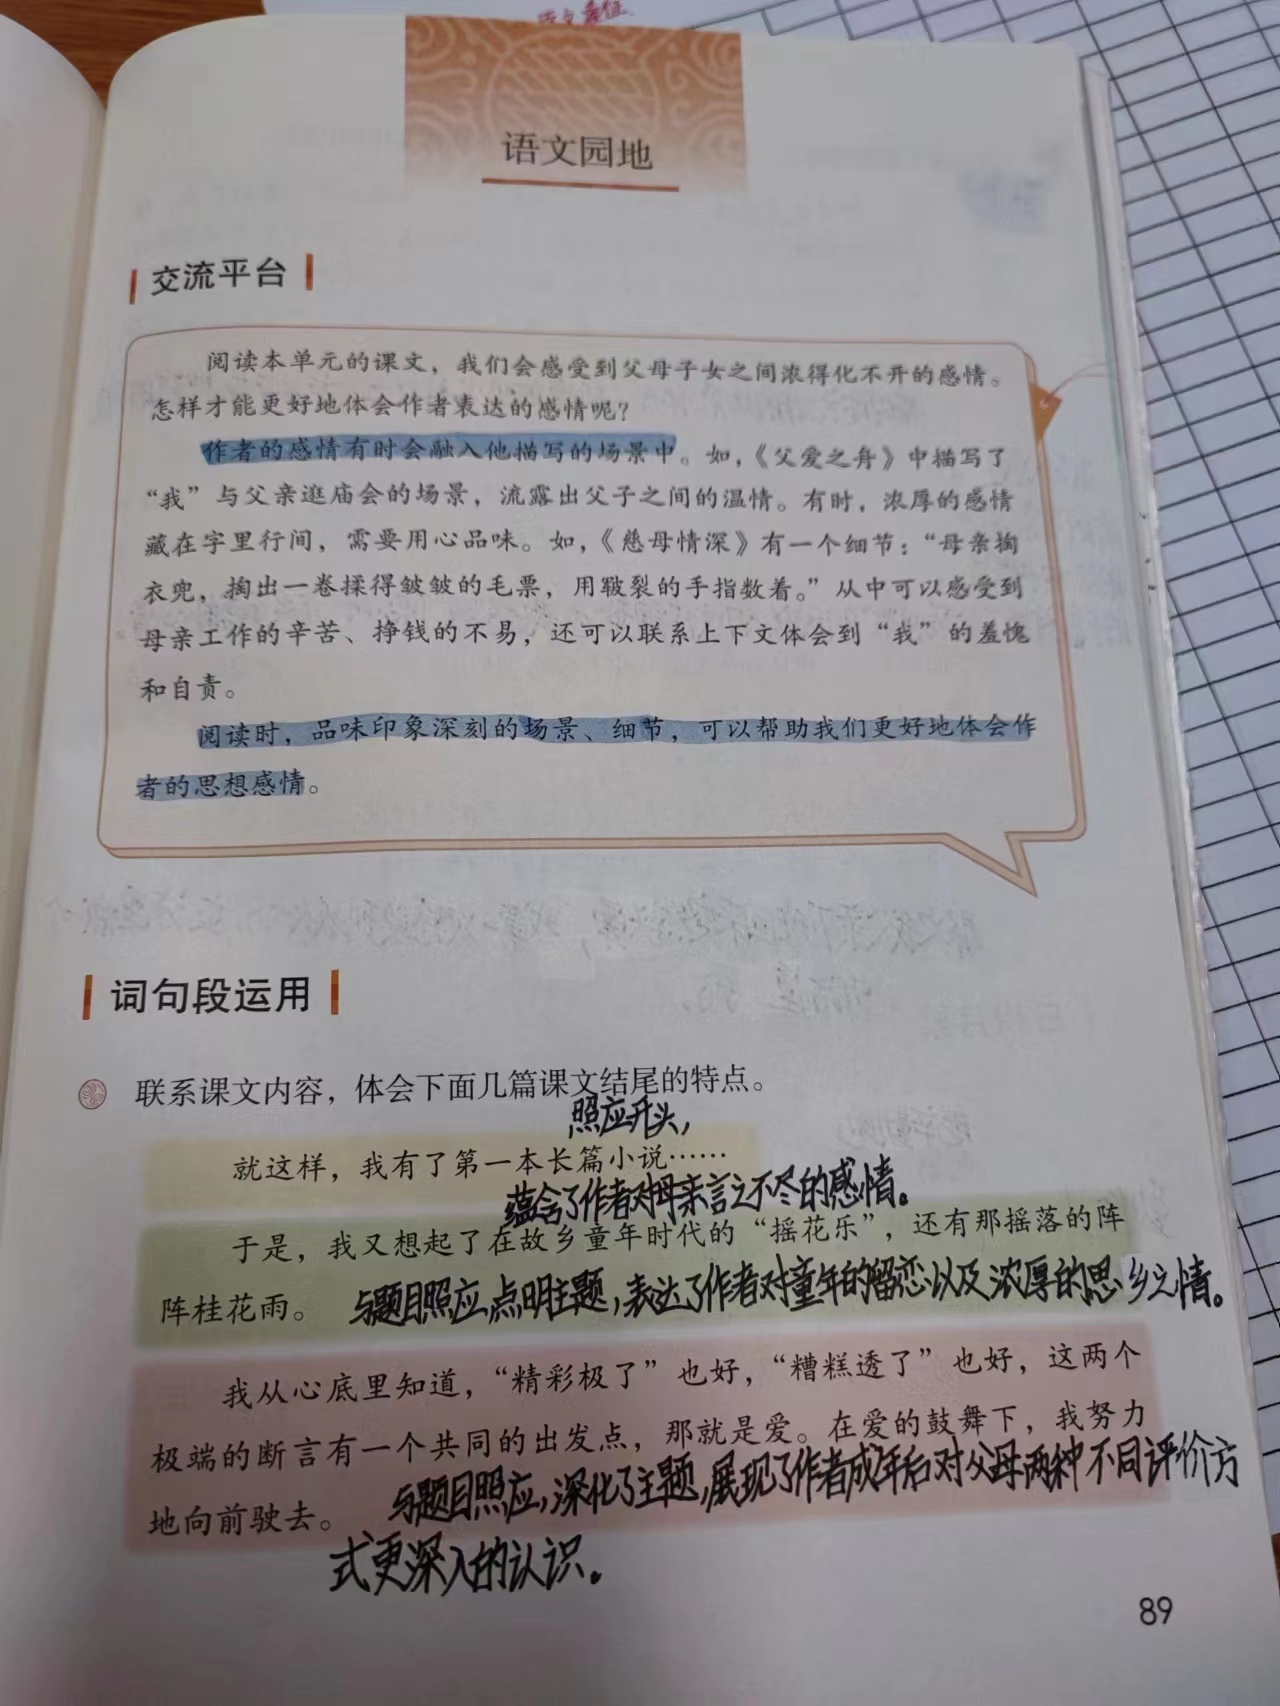 语文园地
交流平台
阅读本单元的课文，我们会感受到父母子女之间浓得化不开的感情。
怎样才能更好地体会作者表达的感情呢？
作者的感情有时会融入他描写的场景中。如，《父爱之舟》中描写了
“我”与父亲逛庙会的场景，流露出父子之间的温情。有时，浓厚的感情
藏在字里行间，需要用心品味。如，《慈母情深》有一个细节：“母亲掏
衣兜，掏出一卷揉得皱皱的毛票，用皲裂的手指数着。”从中可以感受到
母亲工作的辛苦、挣钱的不易，还可以联系上下文体会到“我”的羞愧
和自责。
阅读时，品味印象深刻的场景、细节，可以帮助我们更好地体会作
者的思想感情。
词句段运用
联系课文内容，体会下面几篇课文结尾的特点。
照应开头，
就这样，我有了第一本长篇小说……
蕴含了作者对母亲言之不尽的感情。
于是，我又想起了在故乡童年时代的“摇花乐”，还有那摇落的阵
阵桂花雨。 与题目照应，点明主题，表达了作者对童年的留恋以及浓厚的思乡之情。
我从心底里知道，“精彩极了”也好，“糟糕透了”也好，这两个
极端的断言有一个共同的出发点，那就是爱。在爱的鼓舞下，我努力
地向前驶去。 与题目照应，深化了主题，展现了作者成年后对父母两种不同评价方
式更深入的认识。
89